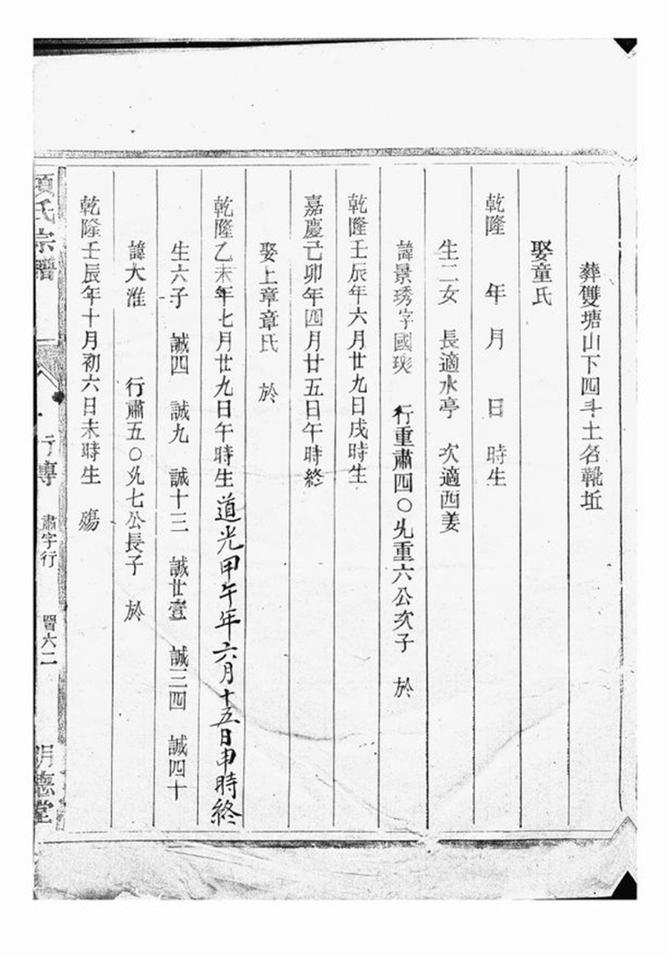 葬雙塘山下四斗土名靴坵
娶童氏
乾隆 年 月 日 時生
生二女 長適水亭 次適西姜
諱景琇字國璞 行重肅四〇 重六公次子 於
乾隆壬辰年六月廿九日戌時生
嘉慶己卯年四月廿五日午時終
娶上章章氏 於
乾隆乙未年七月廿九日午時生道光甲午年六月十五日申時終
生六子 誠四 誠九 誠十三 誠廿壹 誠三四 誠四十
諱大淮 行肅五〇 九七公長子 於
乾隆壬辰年十月初六日未時生 殤
項氏宗譜 行傳 肅字行 六二 明德堂